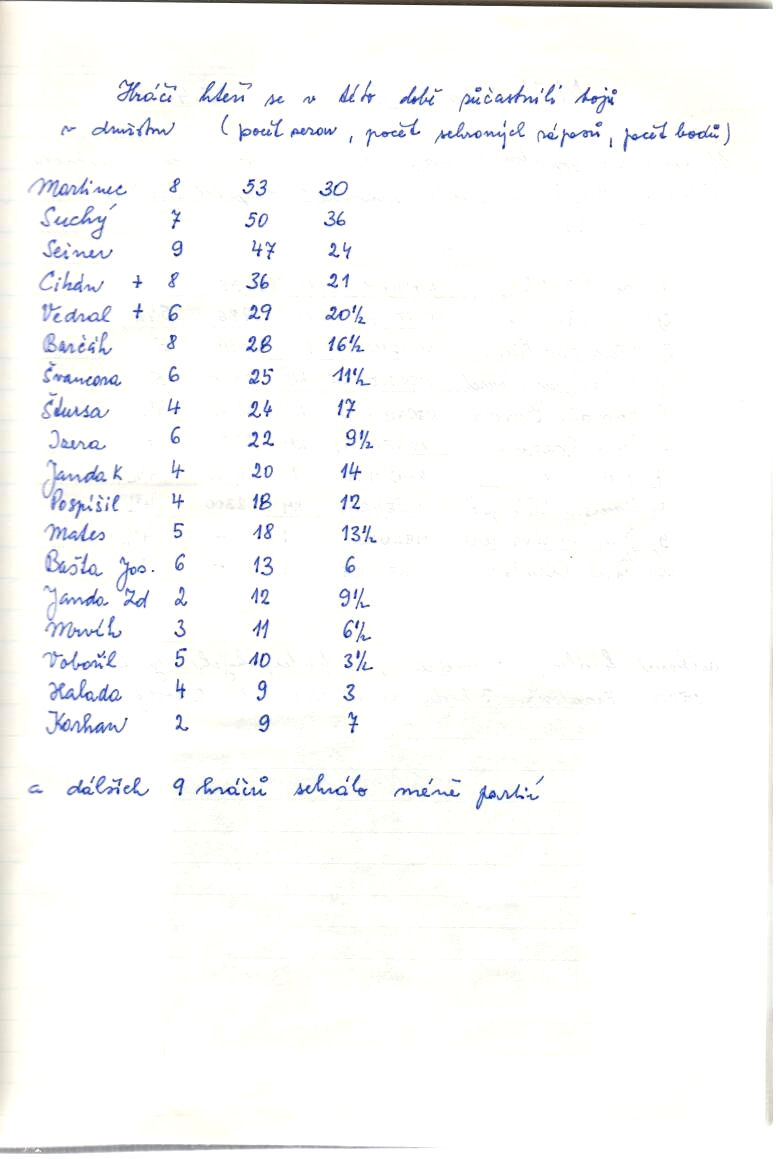 Hráči kteří se v této době zůčastnili bojů
v družstvu (počet sezon, počet sehraných zápasů, počet bodů)
Martinec 8 53 30
Suchý 7 50 36
Seiner 9 47 24
Cihán + 8 36 21
Vedral + 6 29 20½
Barčák 8 28 16½
Švancora 6 25 11½
Štursa 4 24 17
Isera 6 22 9½
Janda K 4 20 14
Pospíšil 4 18 12
Mates 5 18 13½
Bašta Jos. 6 13 6
Janda Zd 2 12 9½
3 11 6½
Vobořil 5 10 3½
Halada 4 9 3
Korhan 2 9 7
a dálšich 9 hráčů sehrálo méně partií